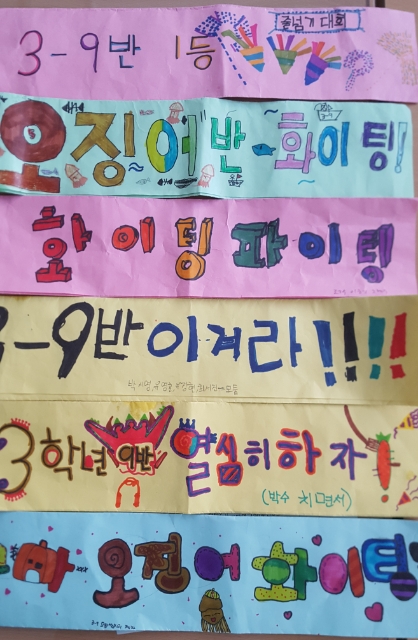 줄넘기 대회
3-9반 1등
오징어반-화이팅!
화이팅 파이팅
3-9반 이겨라!!!!
3학년 9반 열심히 하자!
(박수 치면서)
오징어 화이팅